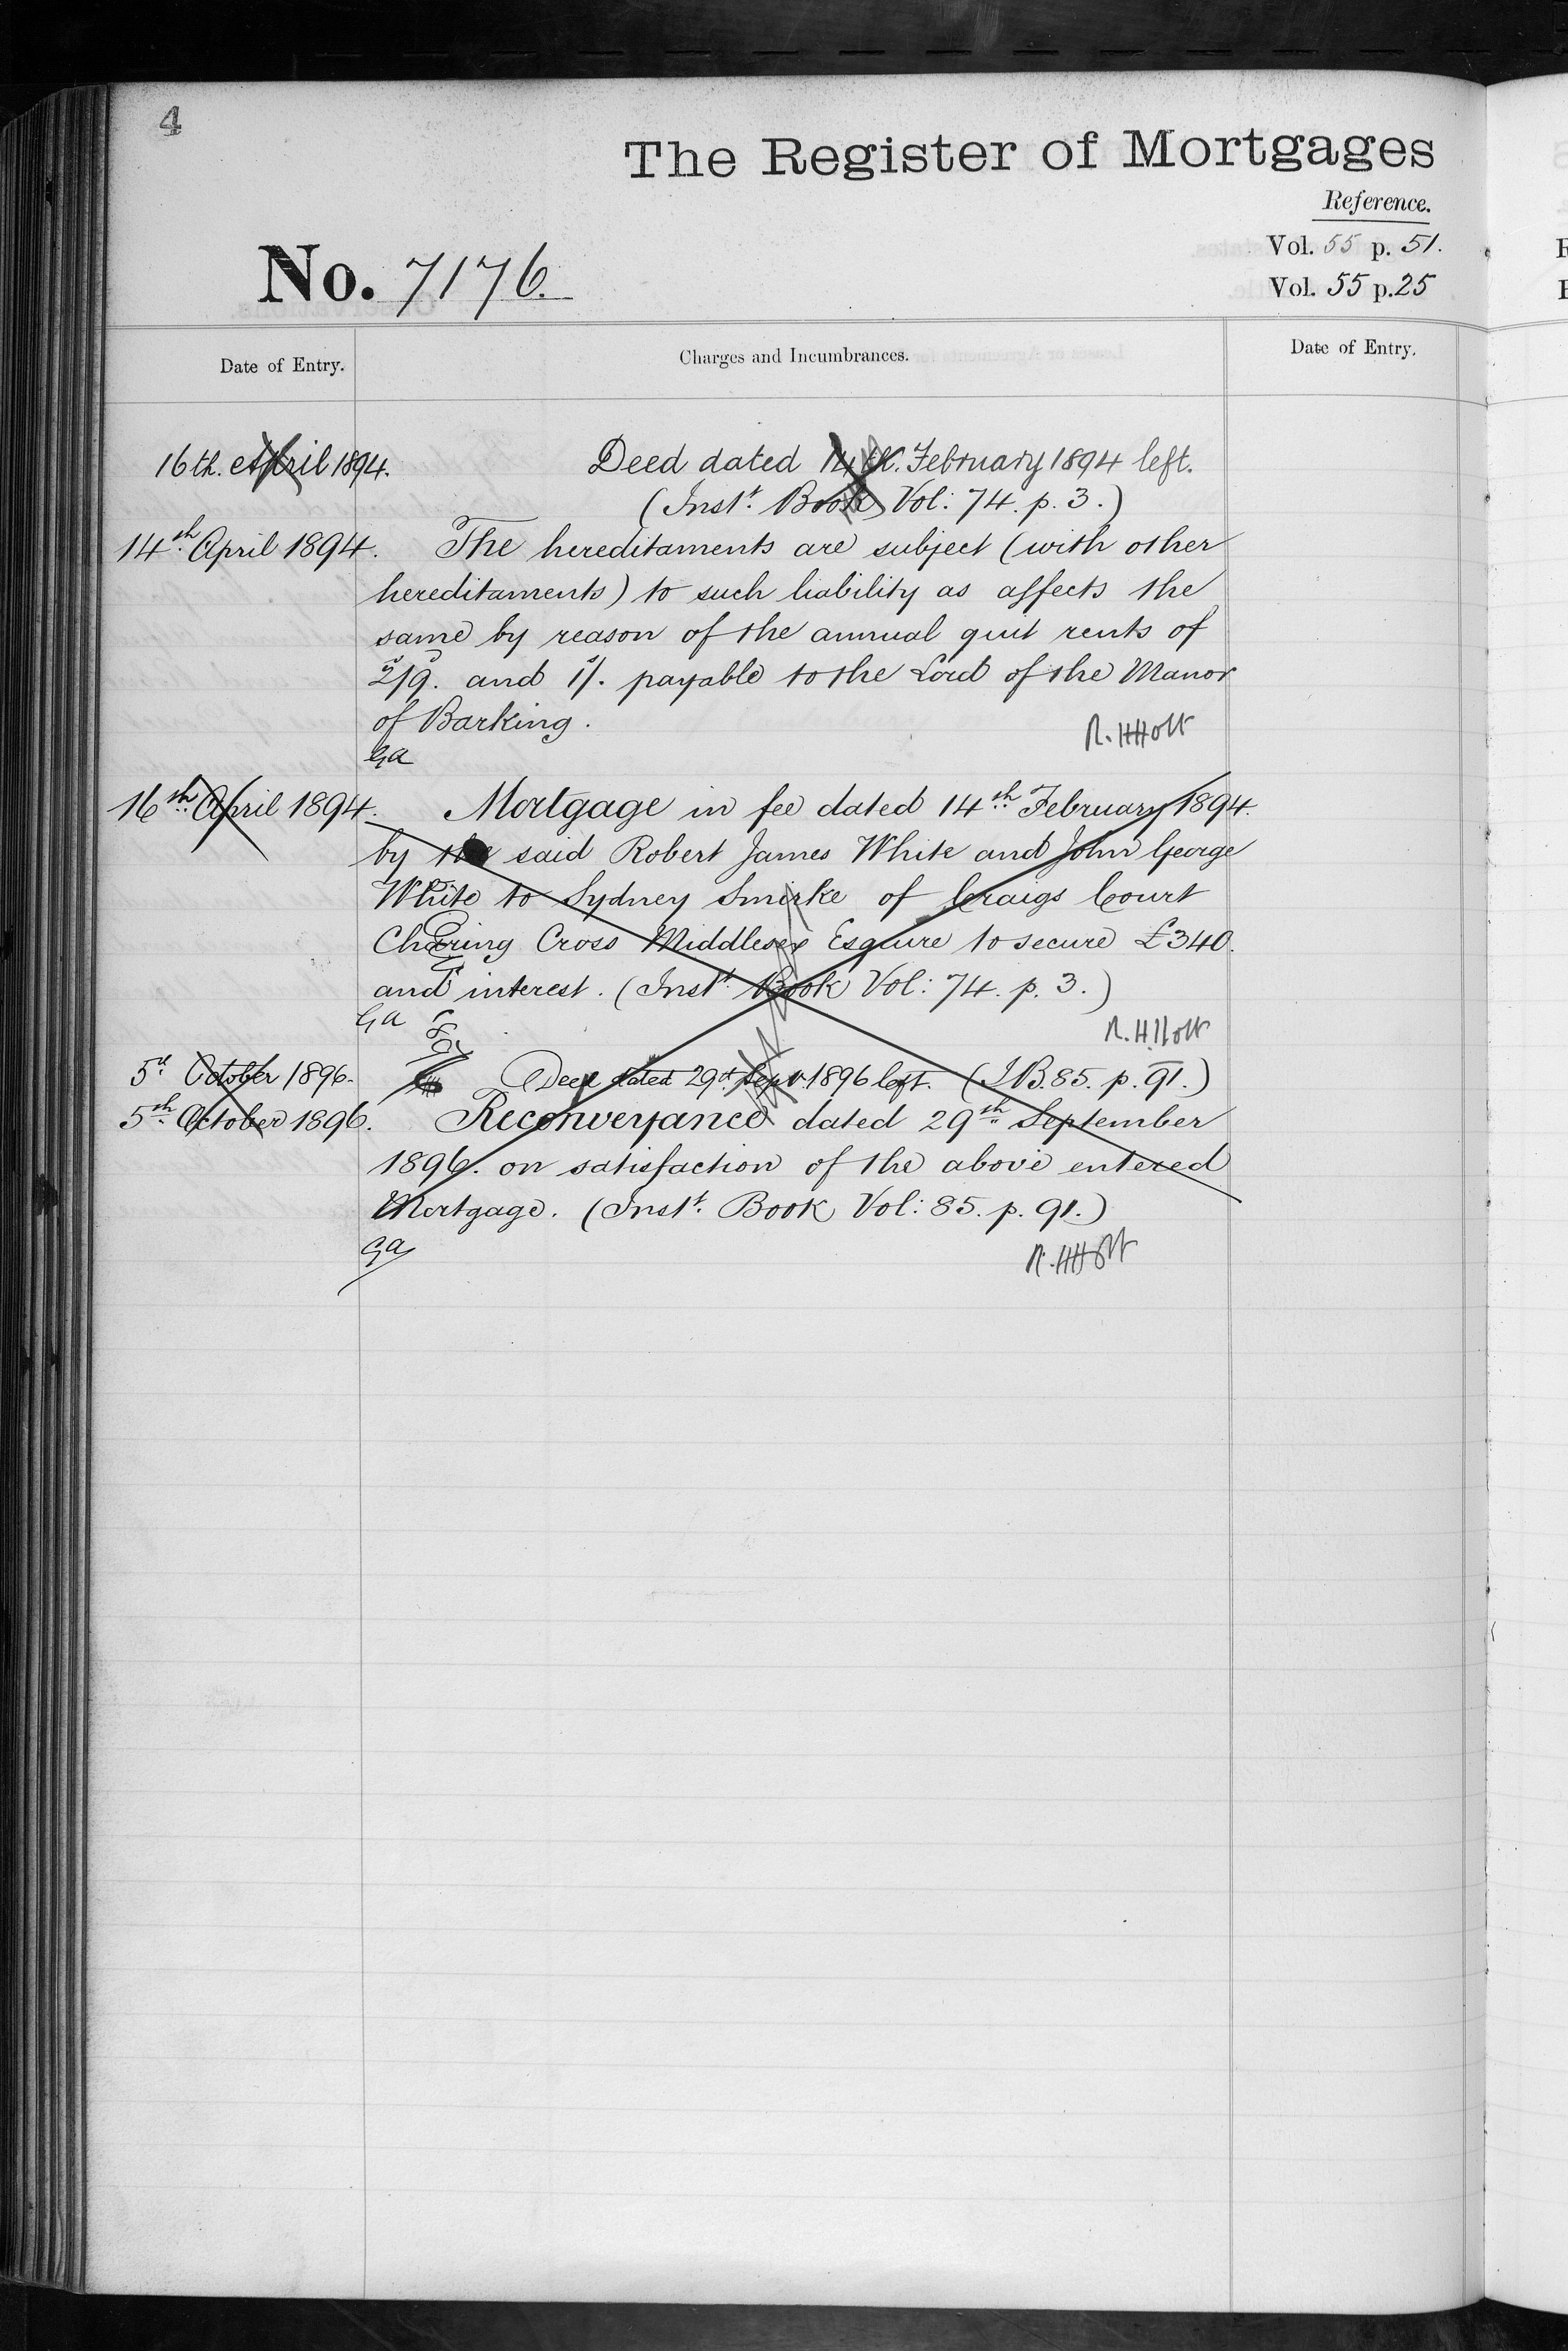 4
The Register of Mortgages
Reference.
Vol. 55 p. 51.
Vol. 55 p. 25
No. 7176.
Date of Entry.
Charges and Incumbrances.
Date of Entry.
16th. April 1894. Deed dated 14th. February 1894 left.
(Inst. Book Vol: 74. p. 3.)
14th April 1894. The hereditaments are subject (with other
hereditaments) to such liability as affects the
same by reason of the annual quit rents of
2s/9d. and 1s/. payable to the Lord of the Manor
of Barking.
R. H Holt
GA
16th April 1894. Mortgage in fee dated 14th February 1894.
by the said Robert James White and John George
White to Sydney Smirke of Craigs Court
Charing Cross Middlesex Esquire to secure £340.
and interest. (Inst. Book Vol: 74. p. 3.)
GA
R. H. Holt
5th October 1896. Deed dated 29th Sept. 1896 left. (I.B. 85. p. 91.)
5th October 1896. Reconveyance dated 29th September
1896. on satisfaction of the above entered
Mortgage. (Inst. Book Vol: 85. p. 91.)
GA
R. H Holt